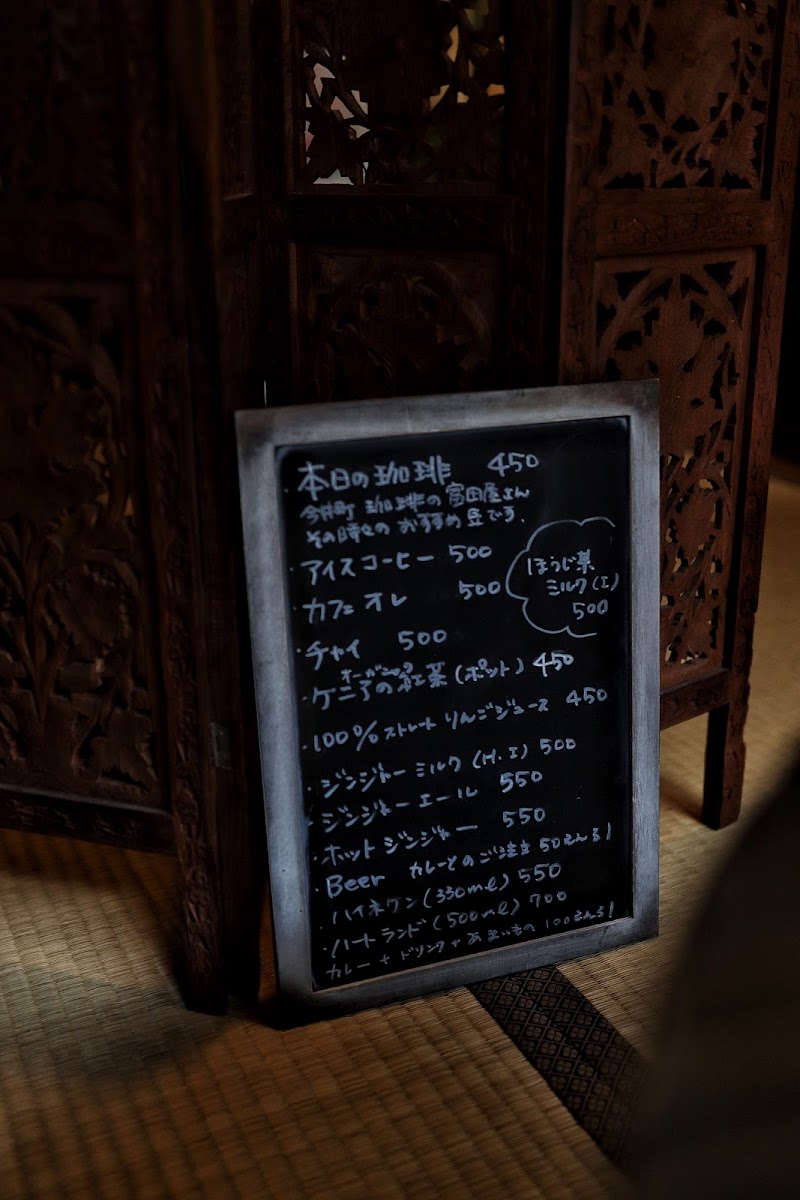 ・本日の珈琲 450
今井町 珈琲の富田屋さん
その時々のおすすめ豆です。
・アイスコーヒー 500
・カフェオレ 500
ほうじ茶
ミルク(I)
500
・チャイ 500
オーガニック
・ケニアの紅茶(ポット) 450
・100%ストレートりんごジュース 450
・ジンジャーミルク(H.I) 500
・ジンジャーエール 550
・ホットジンジャー 550
・Beer カレーとのご注文50えん引
ハイネケン(330ml) 550
・ハートランド(500ml) 700
カレー+ドリンク+あまいもの 100えん引